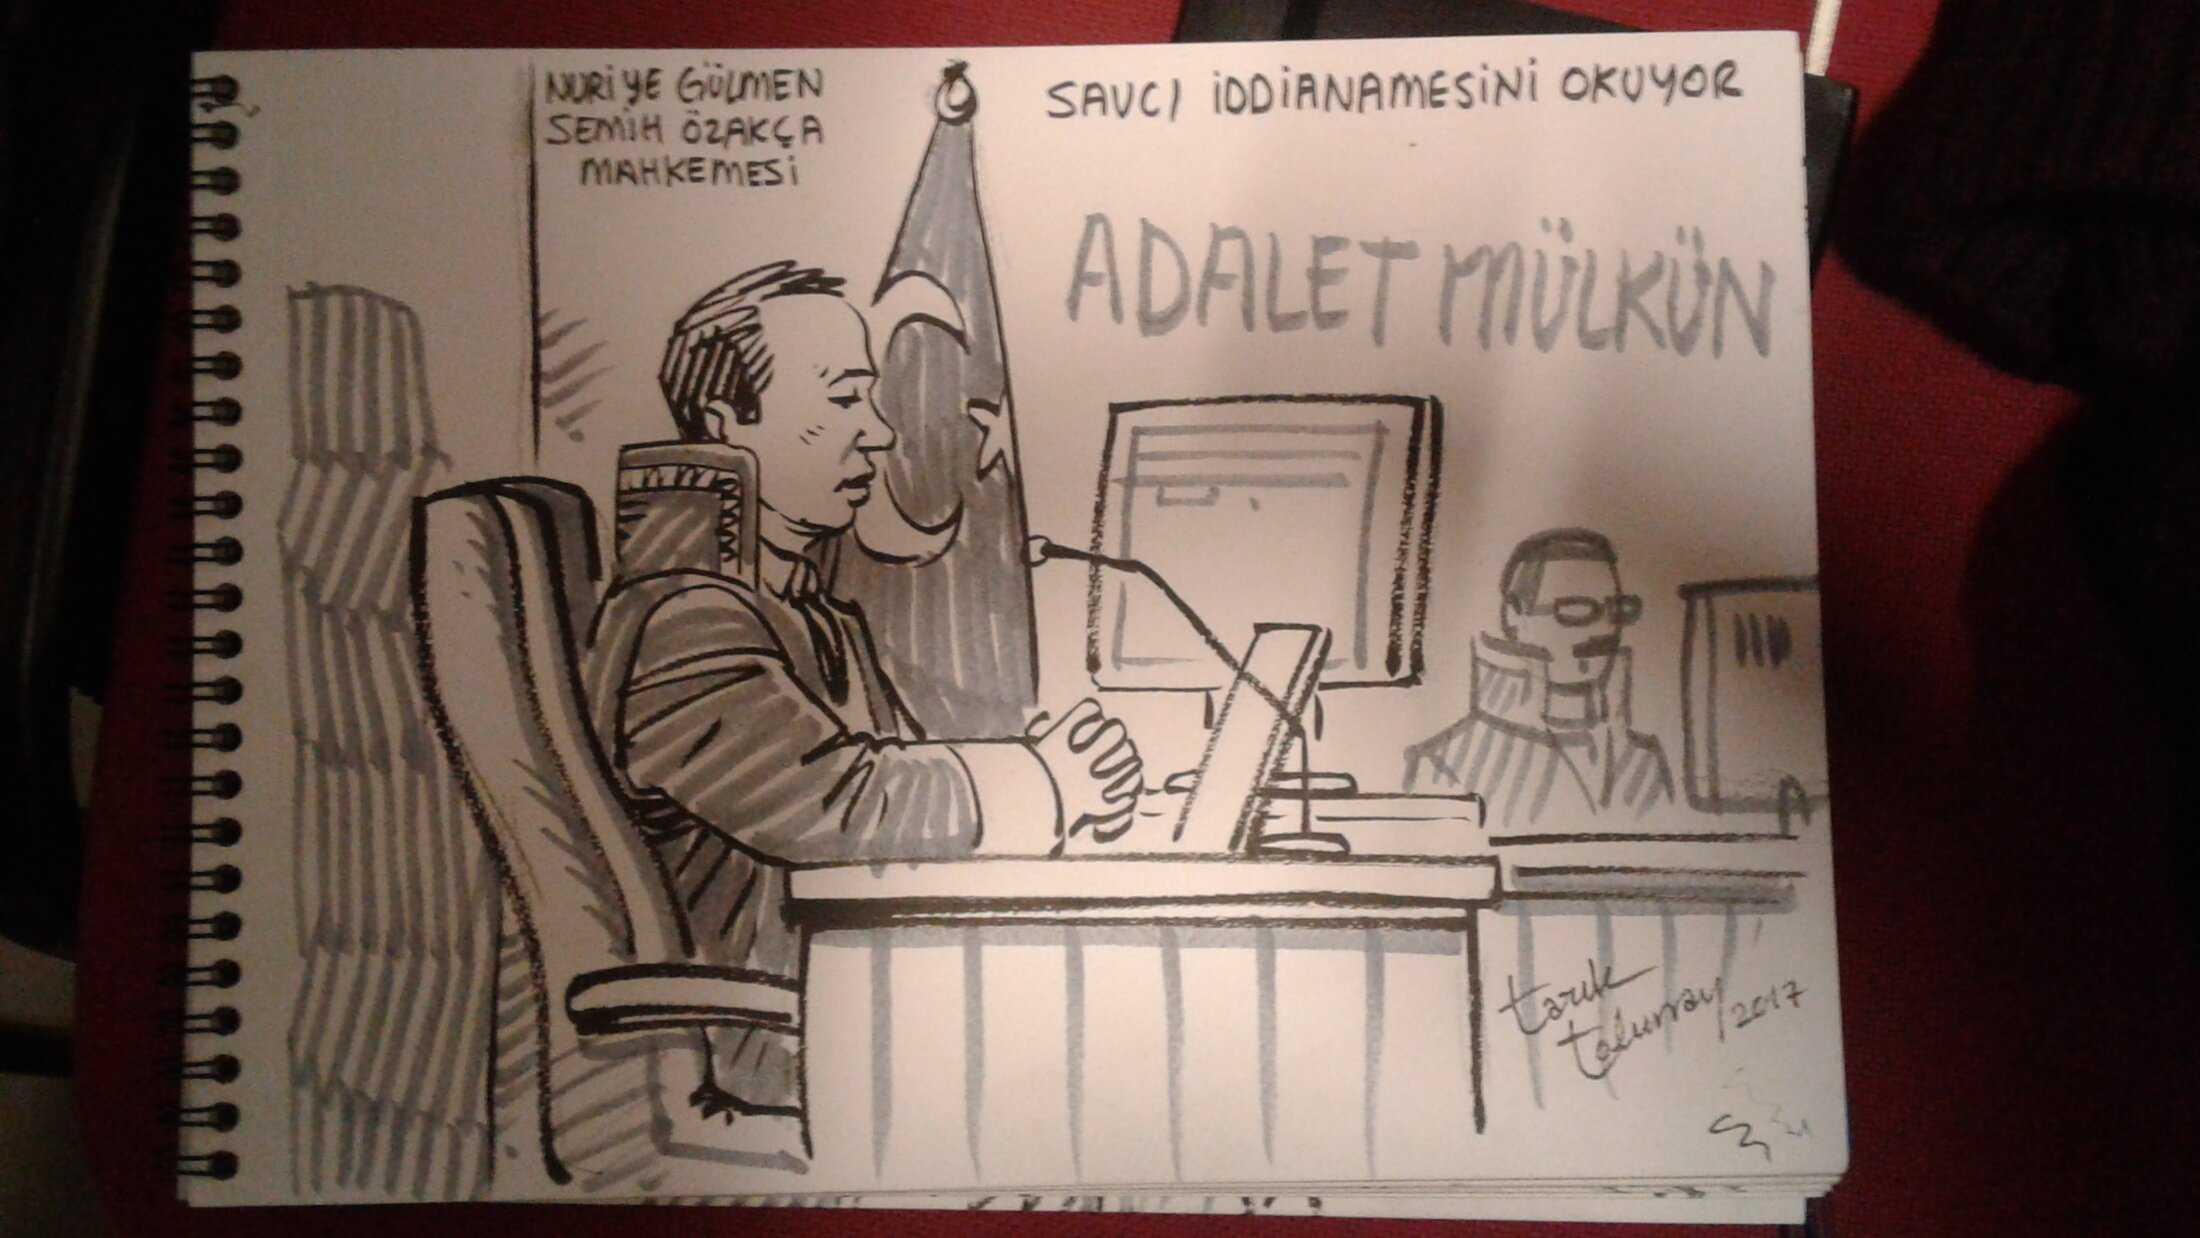 NURİYE GÜLMEN
SEMİH ÖZAKÇA
MAHKEMESİ
SAVCI İDDİANAMESİNİ OKUYOR
ADALET MÜLKÜN
tarık
tolunay 2017